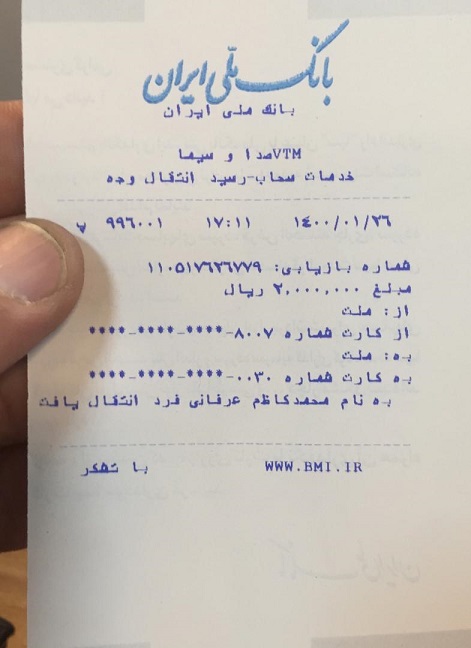 بانک ملّی ایران
بانک ملی ایران
VTMصدا و سیما
خدمات سحاب-رسید انتقال وجه
۱۴۰۰/۰۱/۲۶ ۱۷:۱۱ ۹۹۶۰۰۱ پ
شماره بازیابی: ۱۱۰۵۱۷۶۲۶۷۷۹
مبلغ ۲,۰۰۰,۰۰۰ ریال
از: ملت
از کارت شماره ۸۰۰۷-****-****-****
به: ملت
به کارت شماره ۰۰۳۰-****-****-****
به نام محمدکاظم عرفانی فرد انتقال یافت
WWW.BMI.IR با تشکر